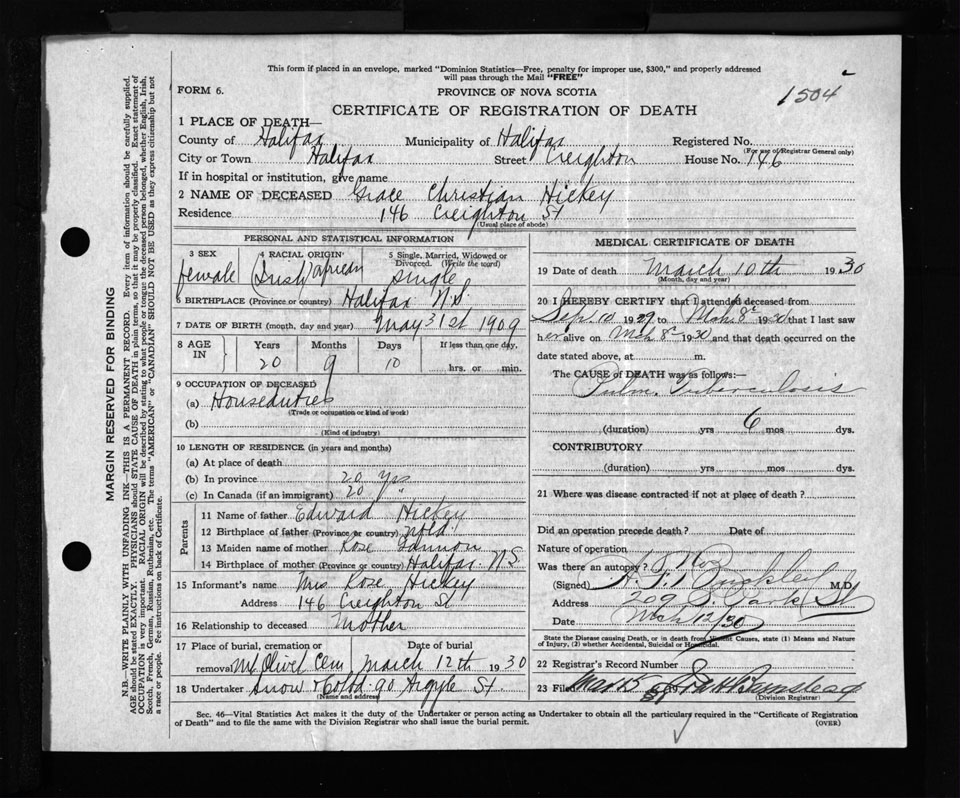 This form if placed in an envelope, marked "Dominion Statistics—Free, penalty for improper use, $300," and properly addressed
will pass through the Mail "FREE"
FORM 6.
PROVINCE OF NOVA SCOTIA
1504
CERTIFICATE OF REGISTRATION OF DEATH
1 PLACE OF DEATH—
County of Halifax Municipality of Halifax Registered No.
(For use of Registrar General only)
City or Town Halifax Street Creighton House No. 146
If in hospital or institution, give name
2 NAME OF DECEASED Grace Christian Hickey
Residence 146 Creighton St
(Usual place of abode)
PERSONAL AND STATISTICAL INFORMATION
3 SEX female
4 RACIAL ORIGIN Irish African
5 Single, Married, Widowed or Divorced. (Write the word) single
6 BIRTHPLACE (Province or country) Halifax N.S.
7 DATE OF BIRTH (month, day and year) May 31st 1909
8 AGE IN Years Months Days If less than one day,
20 9 10 hrs. or min.
9 OCCUPATION OF DECEASED
(a) Houseduties
(Trade or occupation or kind of work)
(b)
(Kind of industry)
10 LENGTH OF RESIDENCE (in years and months)
(a) At place of death
(b) In province 20 yrs
(c) In Canada (if an immigrant) 20 "
Parents
11 Name of father Edward Hickey
12 Birthplace of father (Province or country) Nfld.
13 Maiden name of mother Rose
14 Birthplace of mother (Province or country) Halifax N.S.
15 Informant's name Mrs Rose Hickey
Address 146 Creighton St
16 Relationship to deceased Mother
17 Place of burial, cremation or Date of burial
removal Mt Olivet Cem March 12th 1930
18 Undertaker Snow & Co Ltd. 90 Argyle St.
(Name and address)
MEDICAL CERTIFICATE OF DEATH
19 Date of death March 10th 1930
(Month, day and year)
20 I HEREBY CERTIFY that I attended deceased from
Sep. 10 1929 to Mch. 8th 1930 that I last saw
her alive on Mch 8th 1930 and that death occurred on the
date stated above, at m.
The CAUSE OF DEATH was as follows:
Pulm. Tuberculosis
(duration) yrs 6 mos dys.
CONTRIBUTORY
(duration) yrs mos dys.
21 Where was disease contracted if not at place of death?
Did an operation precede death? Date of
Nature of operation
Was there an autopsy? No
(Signed) M.D.
Address 209 S. Park St
Date Mch 12/30
State the Disease causing Death, or in death from Violent Causes, state (1) Means and Nature
of Injury, (2) whether Accidental, Suicidal or Homicidal.
22 Registrar's Record Number
23 Filed
(Division Registrar)
Sec. 46—Vital Statistics Act makes it the duty of the Undertaker or person acting as Undertaker to obtain all the particulars required in the "Certificate of Registration
of Death" and to file the same with the Division Registrar who shall issue the burial permit.
(OVER)
MARGIN RESERVED FOR BINDING
N.B.—WRITE PLAINLY WITH UNFADING INK—THIS IS A PERMANENT RECORD. Every item of information should be carefully supplied.
AGE should be stated EXACTLY. PHYSICIANS should STATE CAUSE OF DEATH in plain terms, so that it may be properly classified. Exact statement of
OCCUPATION is very important. RACIAL ORIGIN will be described by stating to what people or tongue the deceased person belonged, whether English, Irish,
Scotch, French, German, Russian, Ruthenian, etc. The terms "AMERICAN" or "CANADIAN" SHOULD NOT BE USED as they express citizenship but not
a race or people. See instructions on back of Certificate.